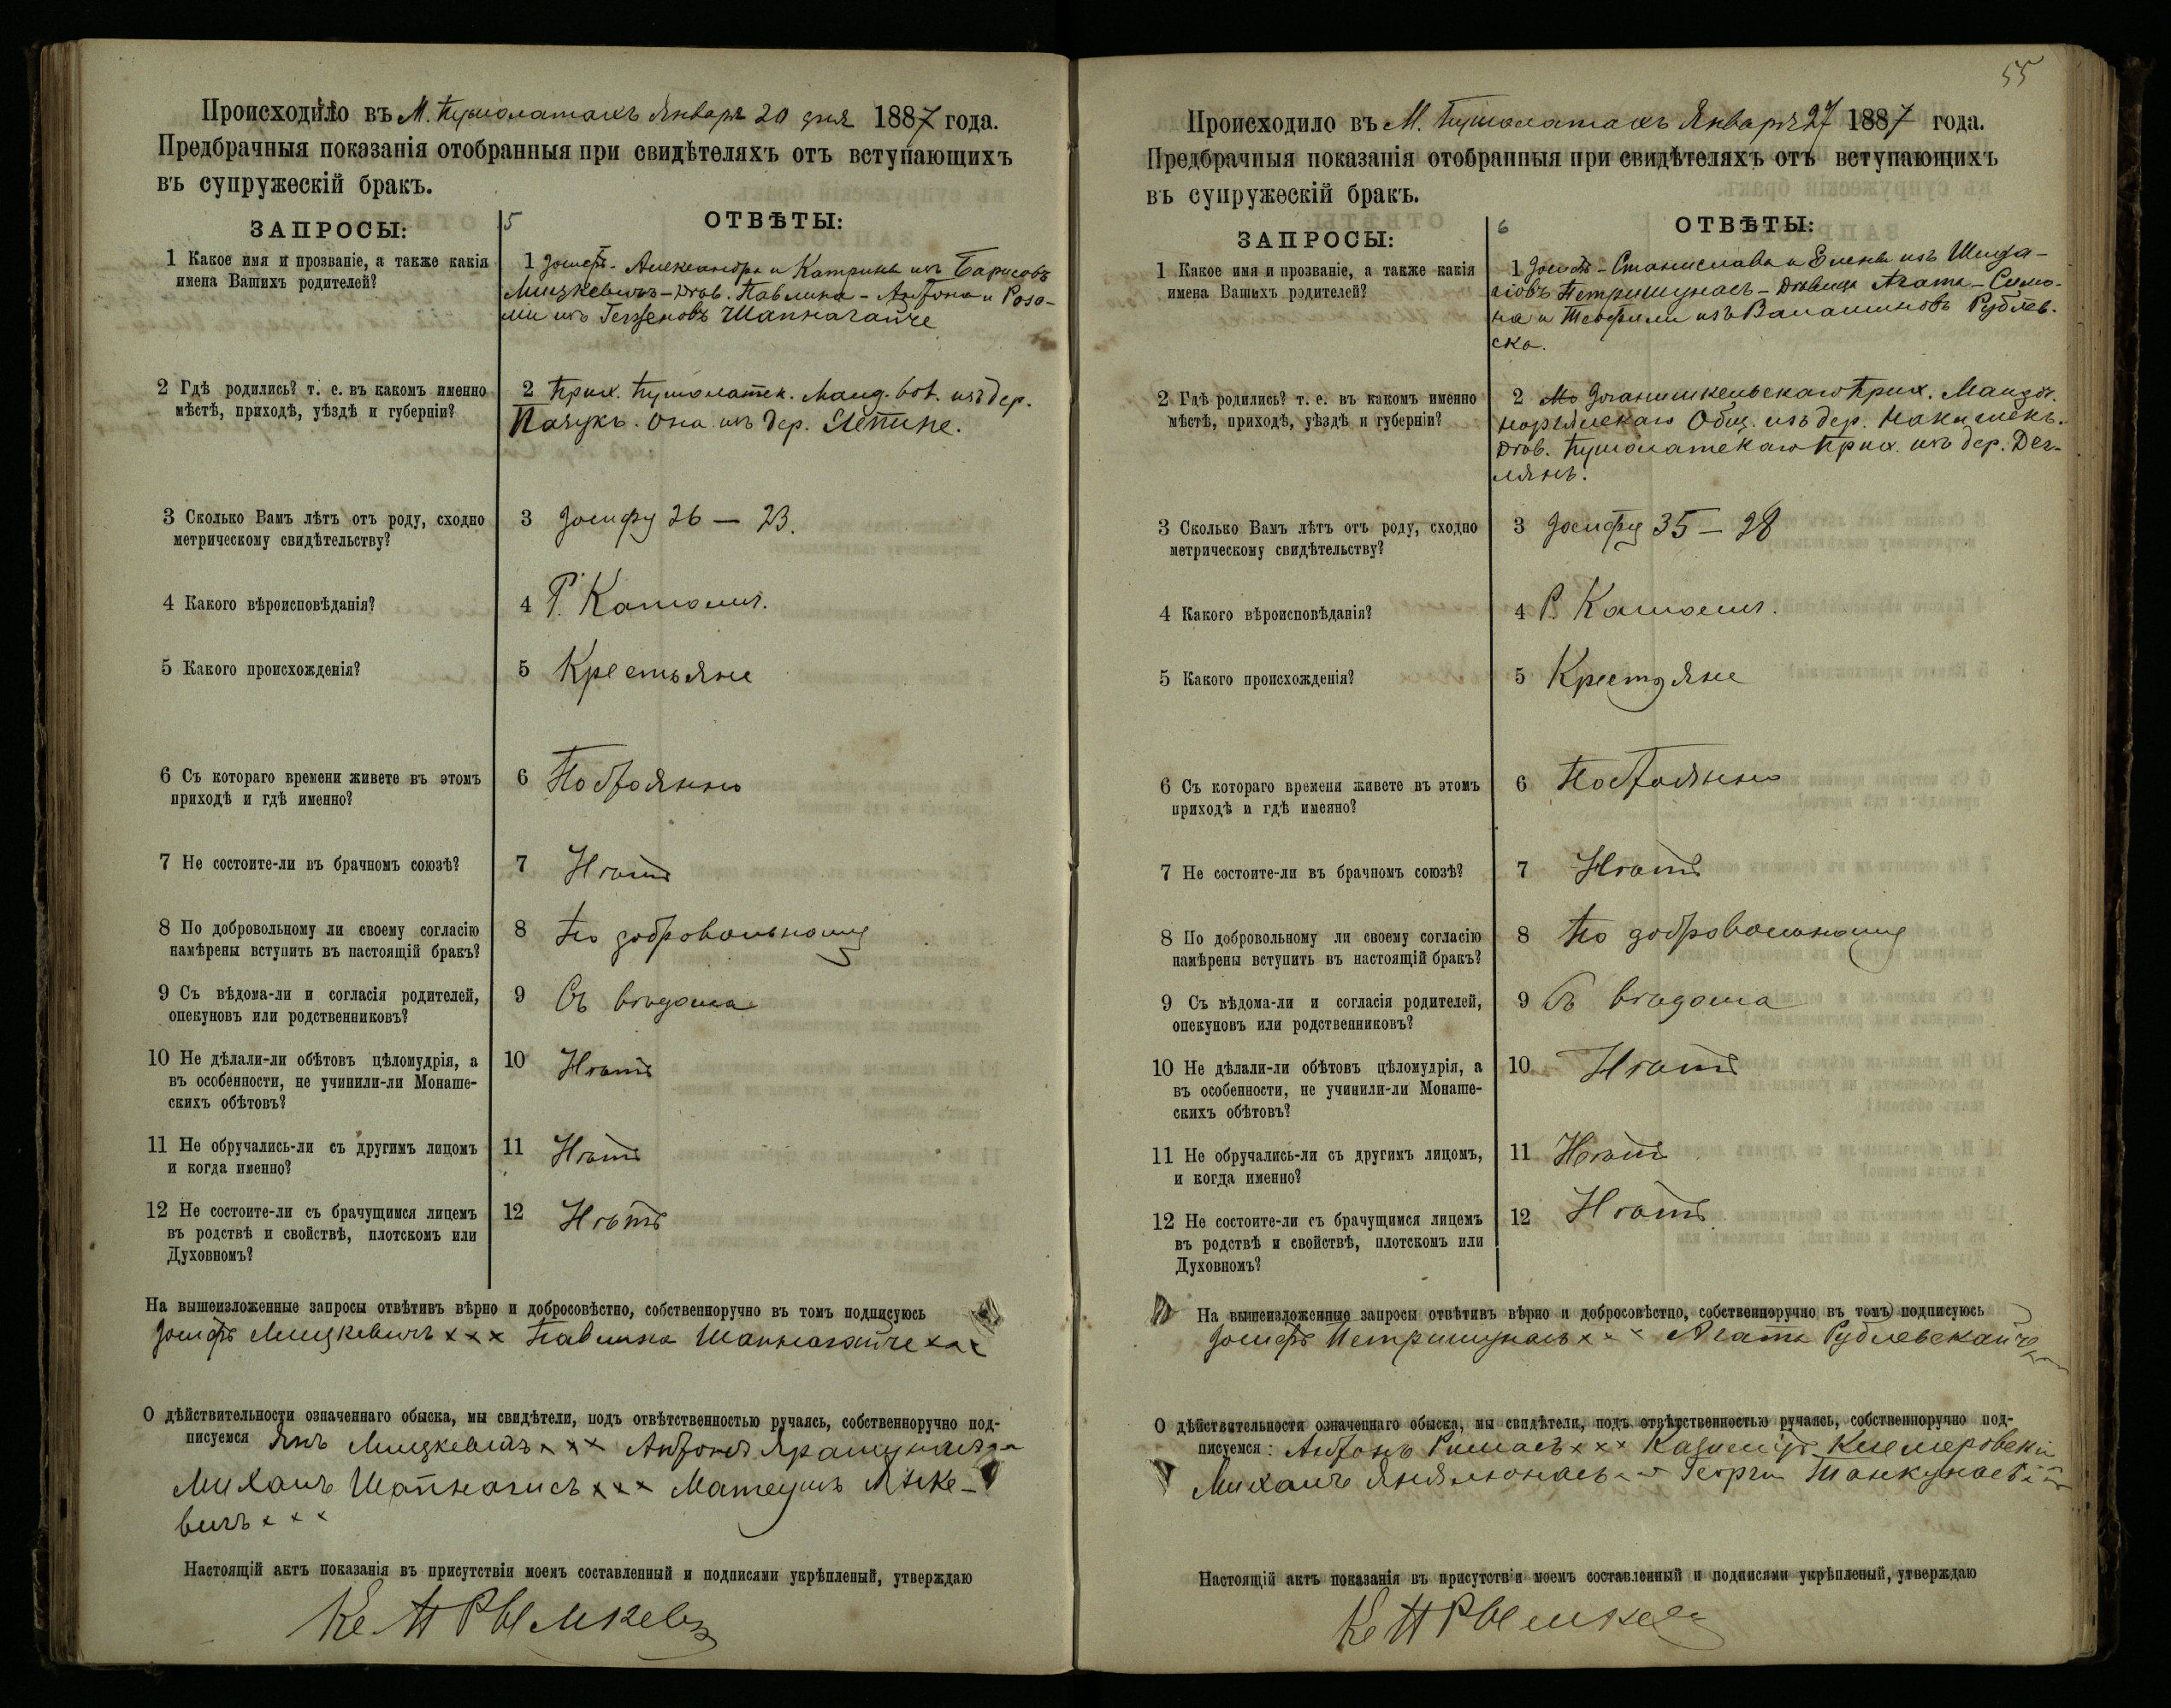 Происходило въ М. Пушолатахъ Января 20 дня 1887 года.
Предбрачныя показанія отобранныя при свидѣтеляхъ отъ вступающихъ
въ супружескій бракъ.
ЗАПРОСЫ:
5
ОТВѢТЫ:
1 Какое имя и прозваніе, а также какія
имена Вашихъ родителей?
1 Іосифъ - Александра и Катрины изъ Барисовъ
Мицкевичъ - Дѣв. Павлина - Антона и Роза-
ли изъ Шапнагайче
2 Гдѣ родились? т. е. въ какомъ именно
мѣстѣ, приходѣ, уѣздѣ и губерніи?
2 Прих. Пушолатск. изъ дер.
Она изъ дер.
3 Сколько Вамъ лѣтъ отъ роду, сходно
метрическому свидѣтельству?
3 Іосифу 26 — 23.
4 Какого вѣроисповѣданія?
4 Р. Католич.
5 Какого происхожденія?
5 Крестьяне
6 Съ котораго времени живете въ этомъ
приходѣ и гдѣ именно?
6 Постоянно
7 Не состоите-ли въ брачномъ союзѣ?
7 Нѣтъ
8 По добровольному ли своему согласію
намѣрены вступить въ настоящій бракъ?
8 По добровольному
9 Съ вѣдома-ли и согласія родителей,
опекуновъ или родственниковъ?
9 Съ вѣдома
10 Не дѣлали-ли обѣтовъ цѣломудрія, а
въ особенности, не учинили-ли Монаше-
скихъ обѣтовъ?
10 Нѣтъ
11 Не обручались-ли съ другимъ лицомъ
и когда именно?
11 Нѣтъ
12 Не состоите-ли съ брачущимся лицемъ
въ родствѣ и свойствѣ, плотскомъ или
Духовномъ?
12 Нѣтъ
На вышеизложенные запросы отвѣтивъ вѣрно и добросовѣстно, собственноручно въ томъ подписуюсь
Іосифъ Мицкевичъ x x x Павлина Шапнагайче x x x
О дѣйствительности означеннаго обыска, мы свидѣтели, подъ отвѣтственностью ручаясь, собственноручно под-
писуемся Янъ Мицкевичъ x x x Антонъ
Михаилъ Шапнагисъ x x x Матеушъ
вичъ x x x
Настоящій актъ показанія въ присутствіи моемъ составленный и подписями укрѣпленый, утверждаю
55
Происходило въ М. Пушолатахъ Января 27 1887 года.
Предбрачныя показанія отобранныя при свидѣтеляхъ отъ вступающихъ
въ супружескій бракъ.
ЗАПРОСЫ:
6
ОТВѢТЫ:
1 Какое имя и прозваніе, а также какія
имена Вашихъ родителей?
1 Іосифъ - Станислава и Елены изъ
Петришунасъ - Дѣвица Агата - Симо-
на и Теофили изъ Рублев-
ска.
2 Гдѣ родились? т. е. въ какомъ именно
мѣстѣ, приходѣ, уѣздѣ и губерніи?
2 Іоганишкельскаго Прих.
Общ. изъ дер.
Дѣв. Пушолатскаго прих. изъ дер. Дег-
лянъ.
3 Сколько Вамъ лѣтъ отъ роду, сходно
метрическому свидѣтельству?
3 Іосифу 35 — 28
4 Какого вѣроисповѣданія?
4 Р. Католич.
5 Какого происхожденія?
5 Крестьяне
6 Съ котораго времени живете въ этомъ
приходѣ и гдѣ именно?
6 Постоянно
7 Не состоите-ли въ брачномъ союзѣ?
7 Нѣтъ
8 По добровольному ли своему согласію
намѣрены вступить въ настоящій бракъ?
8 По добровольному
9 Съ вѣдома-ли и согласія родителей,
опекуновъ или родственниковъ?
9 Съ вѣдома
10 Не дѣлали-ли обѣтовъ цѣломудрія, а
въ особенности, не учинили-ли Монаше-
скихъ обѣтовъ?
10 Нѣтъ
11 Не обручались-ли съ другимъ лицомъ,
и когда именно?
11 Нѣтъ
12 Не состоите-ли съ брачущимся лицемъ
въ родствѣ и свойствѣ, плотскомъ или
Духовномъ?
12 Нѣтъ
На вышеизложенные запросы отвѣтивъ вѣрно и добросовѣстно, собственноручно въ томъ подписуюсь
Іосифъ Петришунасъ x x x Агата Рублевскайче
О дѣйствительности означеннаго обыска, мы свидѣтели, подъ отвѣтственностью ручаясь, собственноручно под-
писуемся: Антонъ Римасъ x x x Казимиръ
Михаилъ Янялюнасъ Георги Танкунасъ
Настоящій актъ показанія въ присутствіи моемъ составленный и подписями укрѣпленый, утверждаю